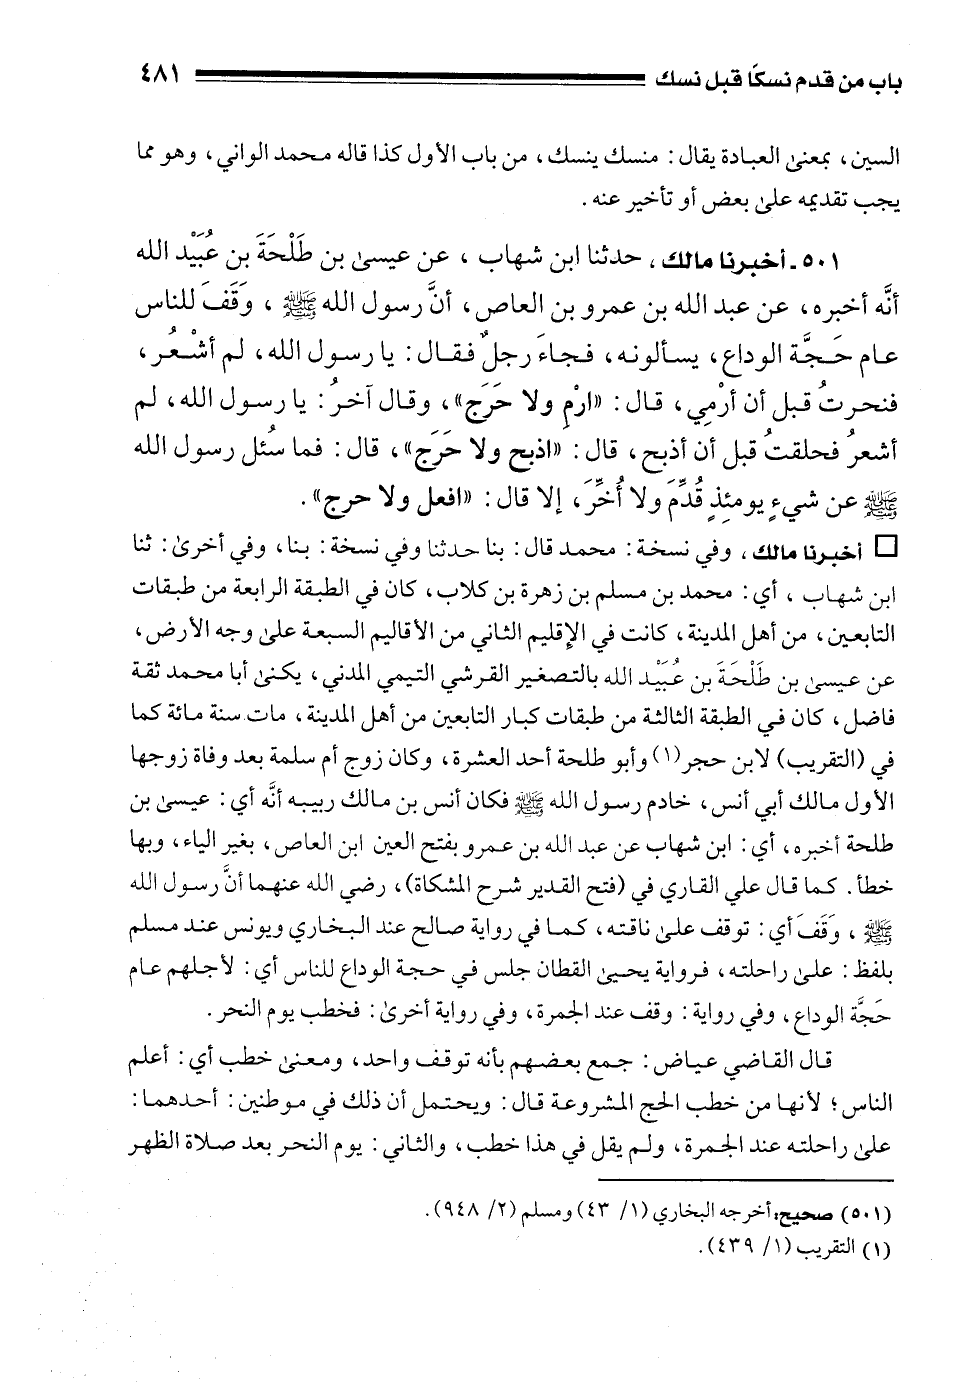 باب من قدم نسكًا قبل نسك ٤٨١
السين، بمعنىٰ العبادة يقال: منسك ينسك، من باب الأول كذا قاله محمد الواني، وهو مما
يجب تقديمه علىٰ بعض أو تأخير عنه.
٥٠١ـ أخبرنا مالك، حدثنا ابن شهاب، عن عيسىٰ بن طَلْحَةَ بن عُبَيْد الله
أنَّه أخبره، عن عبد الله بن عمرو بن العاص، أنَّ رسول الله ﷺ، وقَفَ للناس
عام حَجَّة الوداع، يسألونه، فجاءَ رجلٌ فقال: يا رسول الله، لم أشْعُر،
فنحرتُ قبل أن أرْمِي، قال: «ارْمِ ولا حَرَج»، وقال آخرُ: يا رسول الله، لم
أشعرُ فحلقتُ قبل أن أذبح، قال: «اذبح ولا حَرَج»، قال: فما سُئل رسول الله
ﷺ عن شيءٍ يومئذٍ قُدِّمَ ولا أُخِّرَ، إلا قال: «افعل ولا حرج».
□ أخبرنا مالك، وفي نسخة: محمد قال: بنا حدثنا وفي نسخة: بنا، وفي أخرىٰ: ثنا
ابن شهاب، أي: محمد بن مسلم بن زهرة بن كلاب، كان في الطبقة الرابعة من طبقات
التابعين، من أهل المدينة، كانت في الإقليم الثاني من الأقاليم السبعة علىٰ وجه الأرض،
عن عيسىٰ بن طَلْحَةَ بن عُبَيْد الله بالتصغير القرشي التيمي المدني، يكنىٰ أبا محمد ثقة
فاضل، كان في الطبقة الثالثة من طبقات كبار التابعين من أهل المدينة، مات سنة مائة كما
في (التقريب) لابن حجر(١) وأبو طلحة أحد العشرة، وكان زوج أم سلمة بعد وفاة زوجها
الأول مالك أبي أنس، خادم رسول الله ﷺ فكان أنس بن مالك ربيبه أنَّه أي: عيسىٰ بن
طلحة أخبره، أي: ابن شهاب عن عبد الله بن عمرو بفتح العين ابن العاص، بغير الياء، وبها
خطأ. كما قال علي القاري في (فتح القدير شرح المشكاة)، رضي الله عنهما أنَّ رسول الله
ﷺ، وَقَفَ أي: توقف علىٰ ناقته، كما في رواية صالح عند البخاري ويونس عند مسلم
بلفظ: علىٰ راحلته، فرواية يحيىٰ القطان جلس في حجة الوداع للناس أي: لأجلهم عام
حَجَّة الوداع، وفي رواية: وقف عند الجمرة، وفي رواية أخرىٰ: فخطب يوم النحر.
قال القاضي عياض: جمع بعضهم بأنه توقف واحد، ومعنىٰ خطب أي: أعلم
الناس؛ لأنها من خطب الحج المشروعة قال: ويحتمل أن ذلك في موطنين: أحدهما:
علىٰ راحلته عند الجمرة، ولم يقل في هذا خطب، والثاني: يوم النحر بعد صلاة الظهر
(٥٠١) صحيح: أخرجه البخاري (١/ ٤٣) ومسلم (٢/ ٩٤٨).
(١) التقريب (١/ ٤٣٩).